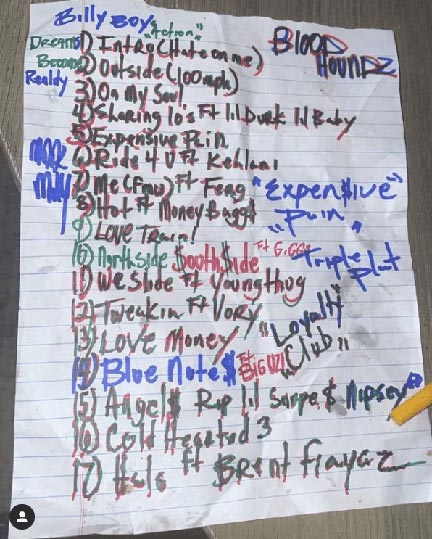 Billy Boy
"Action"
Dreams
Become
Realdy
BLOOD
HOUNDZ
1) Intro (Hate on me)
2) Outside (100mph)
3) On My Soul
4) Sharing lo's Ft lil Durk lil Baby
5) Expensive Pain
6) Ride 4 U Ft Kehlani
7) Me (Fmw) Ft Feng
8) Hot Ft MoneyBaggt
9) LOVE Train!
10) Northside $outh$ide Ft GiGGs
11) We Slide Ft Young thug
12) Tweakin Ft Vory
13) LOVE Money
14) Blue Note$ Ft BiG UZI
15) Angel$ Rip lil Snupe $ Nipsey
16) Cold Hearted 3
17) Halo ft Brent Fiayaz
"Expen$ive
Pain"
Triple
Plat
"Loyalty
Club"